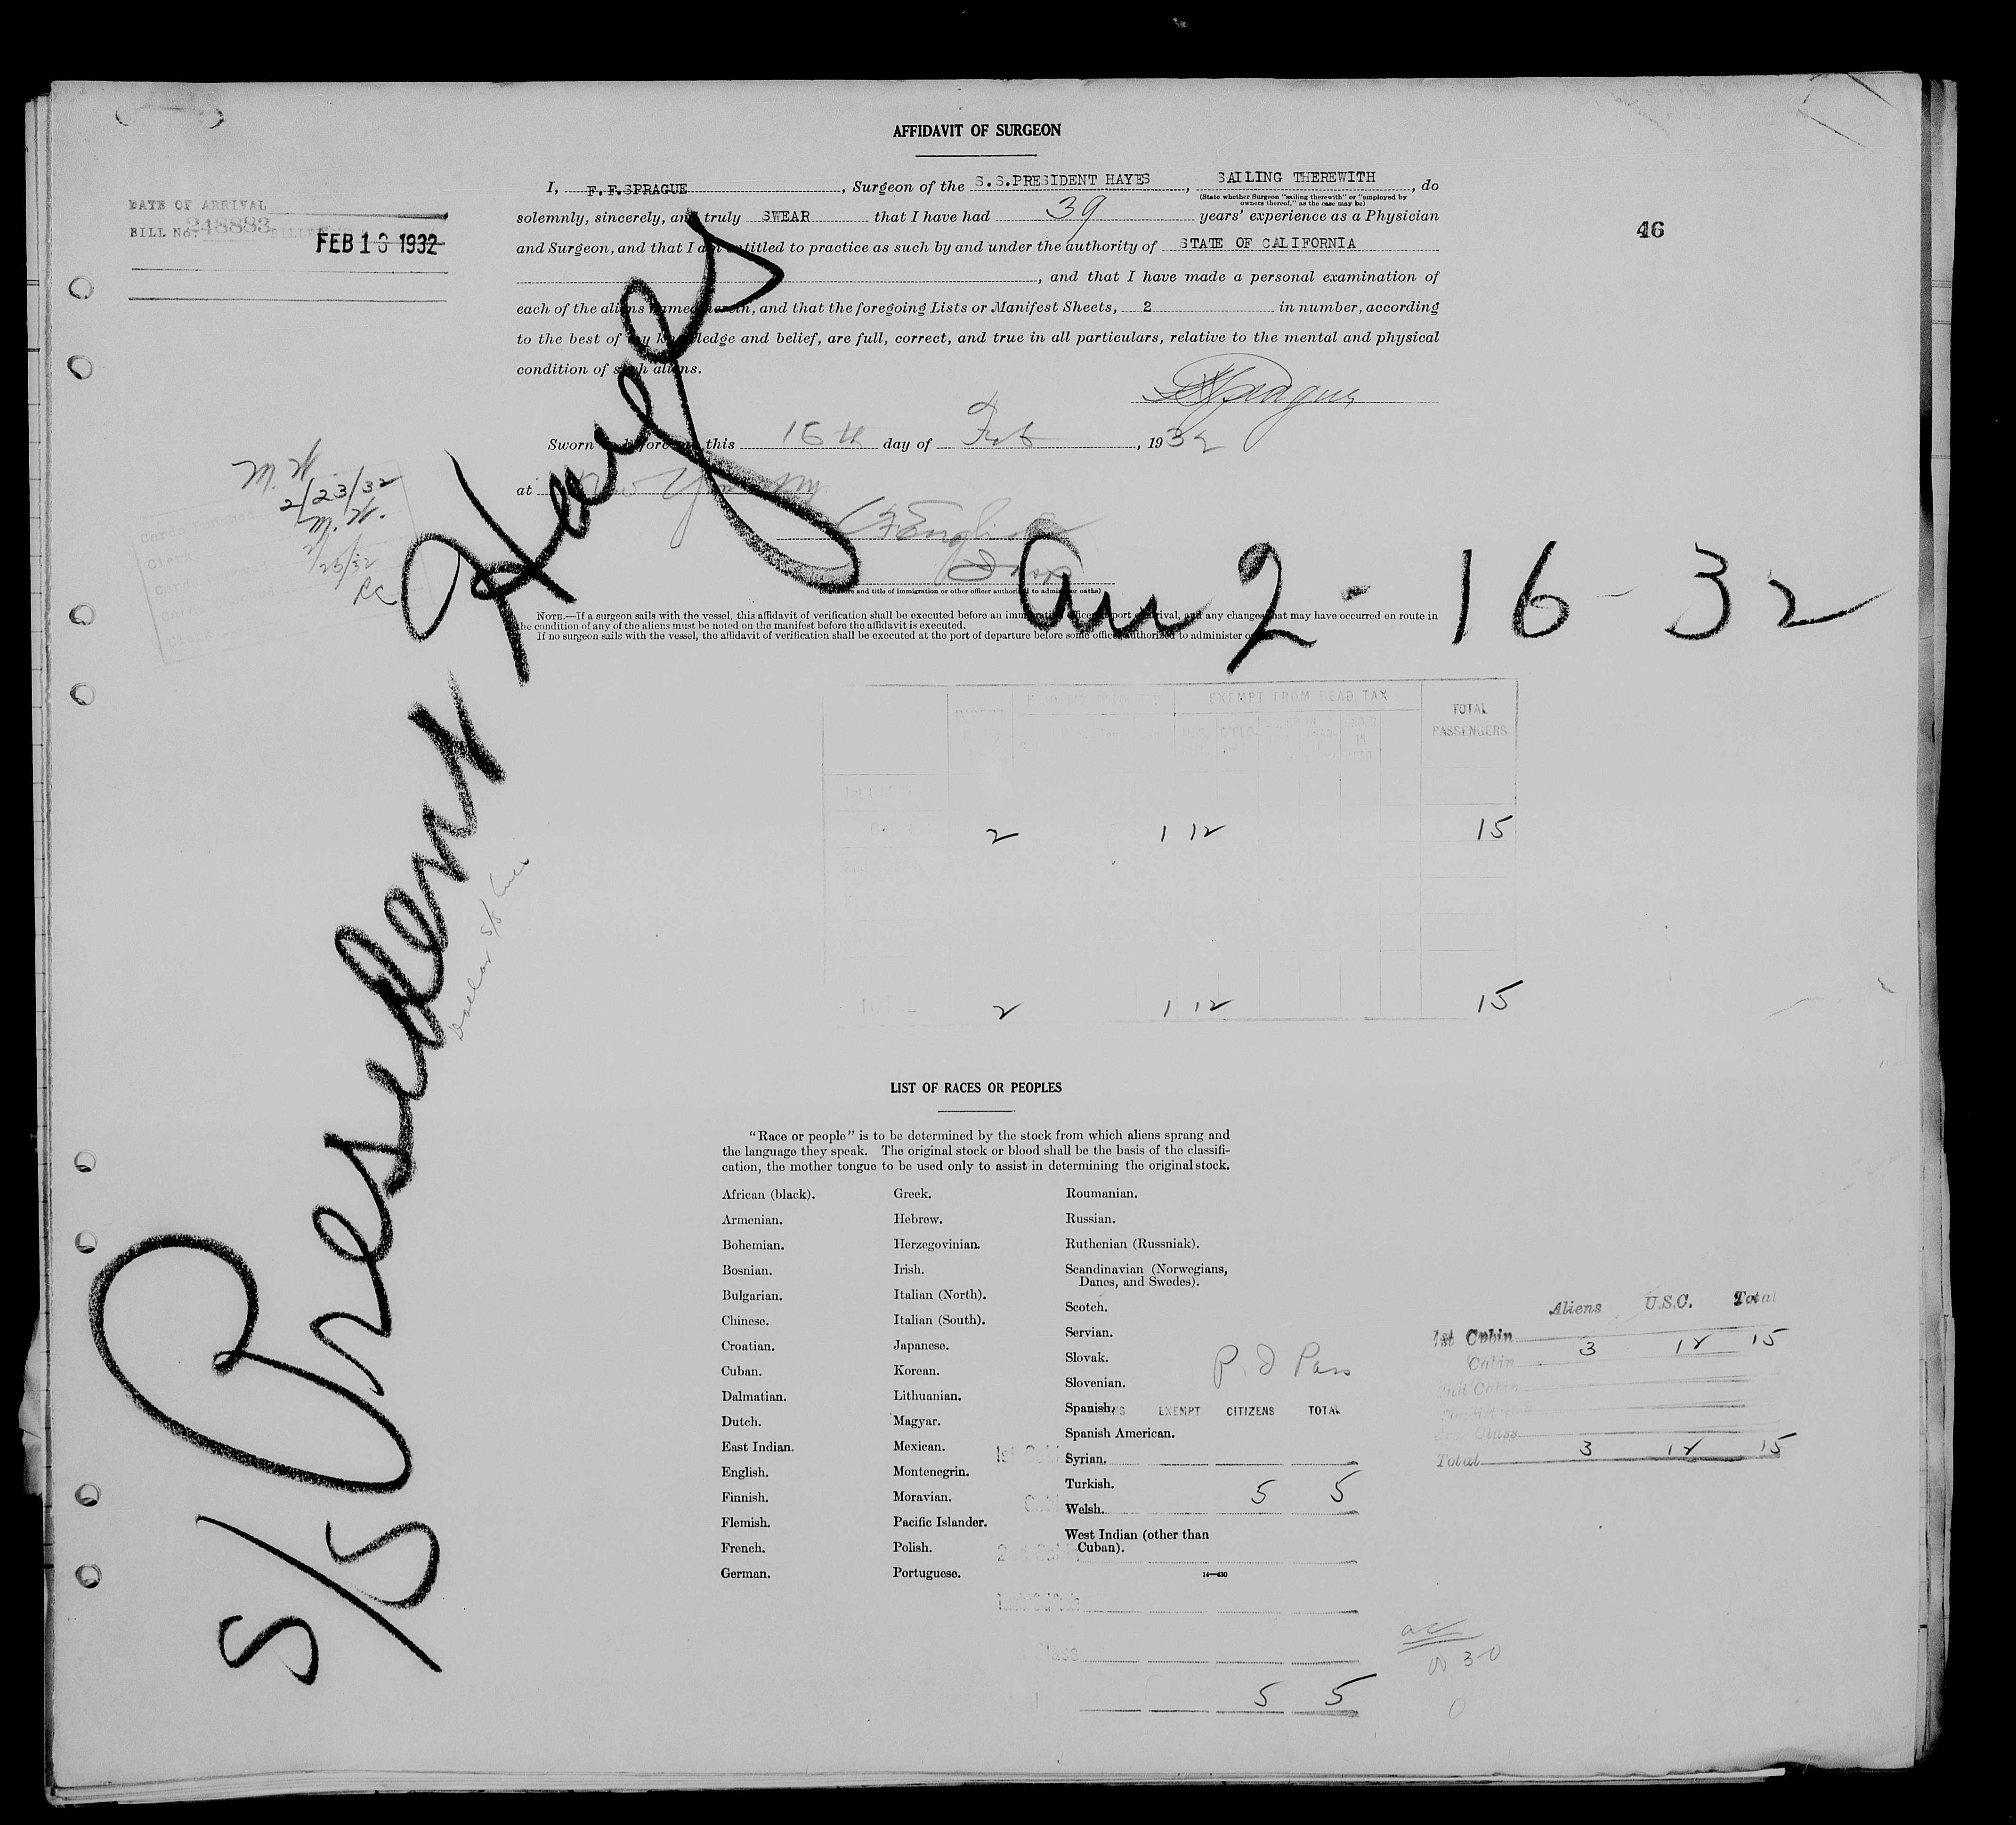 AFFIDAVIT OF SURGEON
I, F.F.SPRAGUE, Surgeon of the S.S.PRESIDENT HAYES, SAILING THEREWITH, do
(State whether Surgeon "sailing therewith" or "employed by owners thereof," as the case may be)
solemnly, sincerely, and truly SWEAR that I have had 39 years' experience as a Physician
and Surgeon, and that I am entitled to practice as such by and under the authority of STATE OF CALIFORNIA
, and that I have made a personal examination of
each of the aliens named herein, and that the foregoing Lists or Manifest Sheets, 2 in number, according
to the best of my knowledge and belief, are full, correct, and true in all particulars, relative to the mental and physical
condition of such aliens.
DATE OF ARRIVAL
BILL No. 248893
FEB 16 1932
46
FFSprague
Sworn to before me this 16th day of Feb, 1932
at New York
2/23/32
S/S President Hayes
Arr 2-16-32
Dollar S/S Line
NOTE.—If a surgeon sails with the vessel, this affidavit of verification shall be executed before an immigration officer at port of arrival, and any changes that may have occurred en route in
the condition of any of the aliens must be noted on the manifest before the affidavit is executed.
If no surgeon sails with the vessel, the affidavit of verification shall be executed at the port of departure before some officer authorized to administer
EXEMPT FROM HEAD TAX
TOTAL PASSENGERS
2 1 12 15
2 1 12 15
LIST OF RACES OR PEOPLES
"Race or people" is to be determined by the stock from which aliens sprang and
the language they speak. The original stock or blood shall be the basis of the classifi-
cation, the mother tongue to be used only to assist in determining the original stock.
African (black).
Armenian.
Bohemian.
Bosnian.
Bulgarian.
Chinese.
Croatian.
Cuban.
Dalmatian.
Dutch.
East Indian.
English.
Finnish.
Flemish.
French.
German.
Greek.
Hebrew.
Herzegovinian.
Irish.
Italian (North).
Italian (South).
Japanese.
Korean.
Lithuanian.
Magyar.
Mexican.
Montenegrin.
Moravian.
Pacific Islander.
Polish.
Portuguese.
Roumanian.
Russian.
Ruthenian (Russniak).
Scandinavian (Norwegians,
Danes, and Swedes).
Scotch.
Servian.
Slovak.
Slovenian.
Spanish.
Spanish American.
Syrian.
Turkish.
Welsh.
West Indian (other than
Cuban).
14—430
EXEMPT CITIZENS TOTAL
5 5
5 5
Aliens U.S.C. Total
1st Cabin 3 12 15
Cabin
2nd Cabin
Total 3 12 15